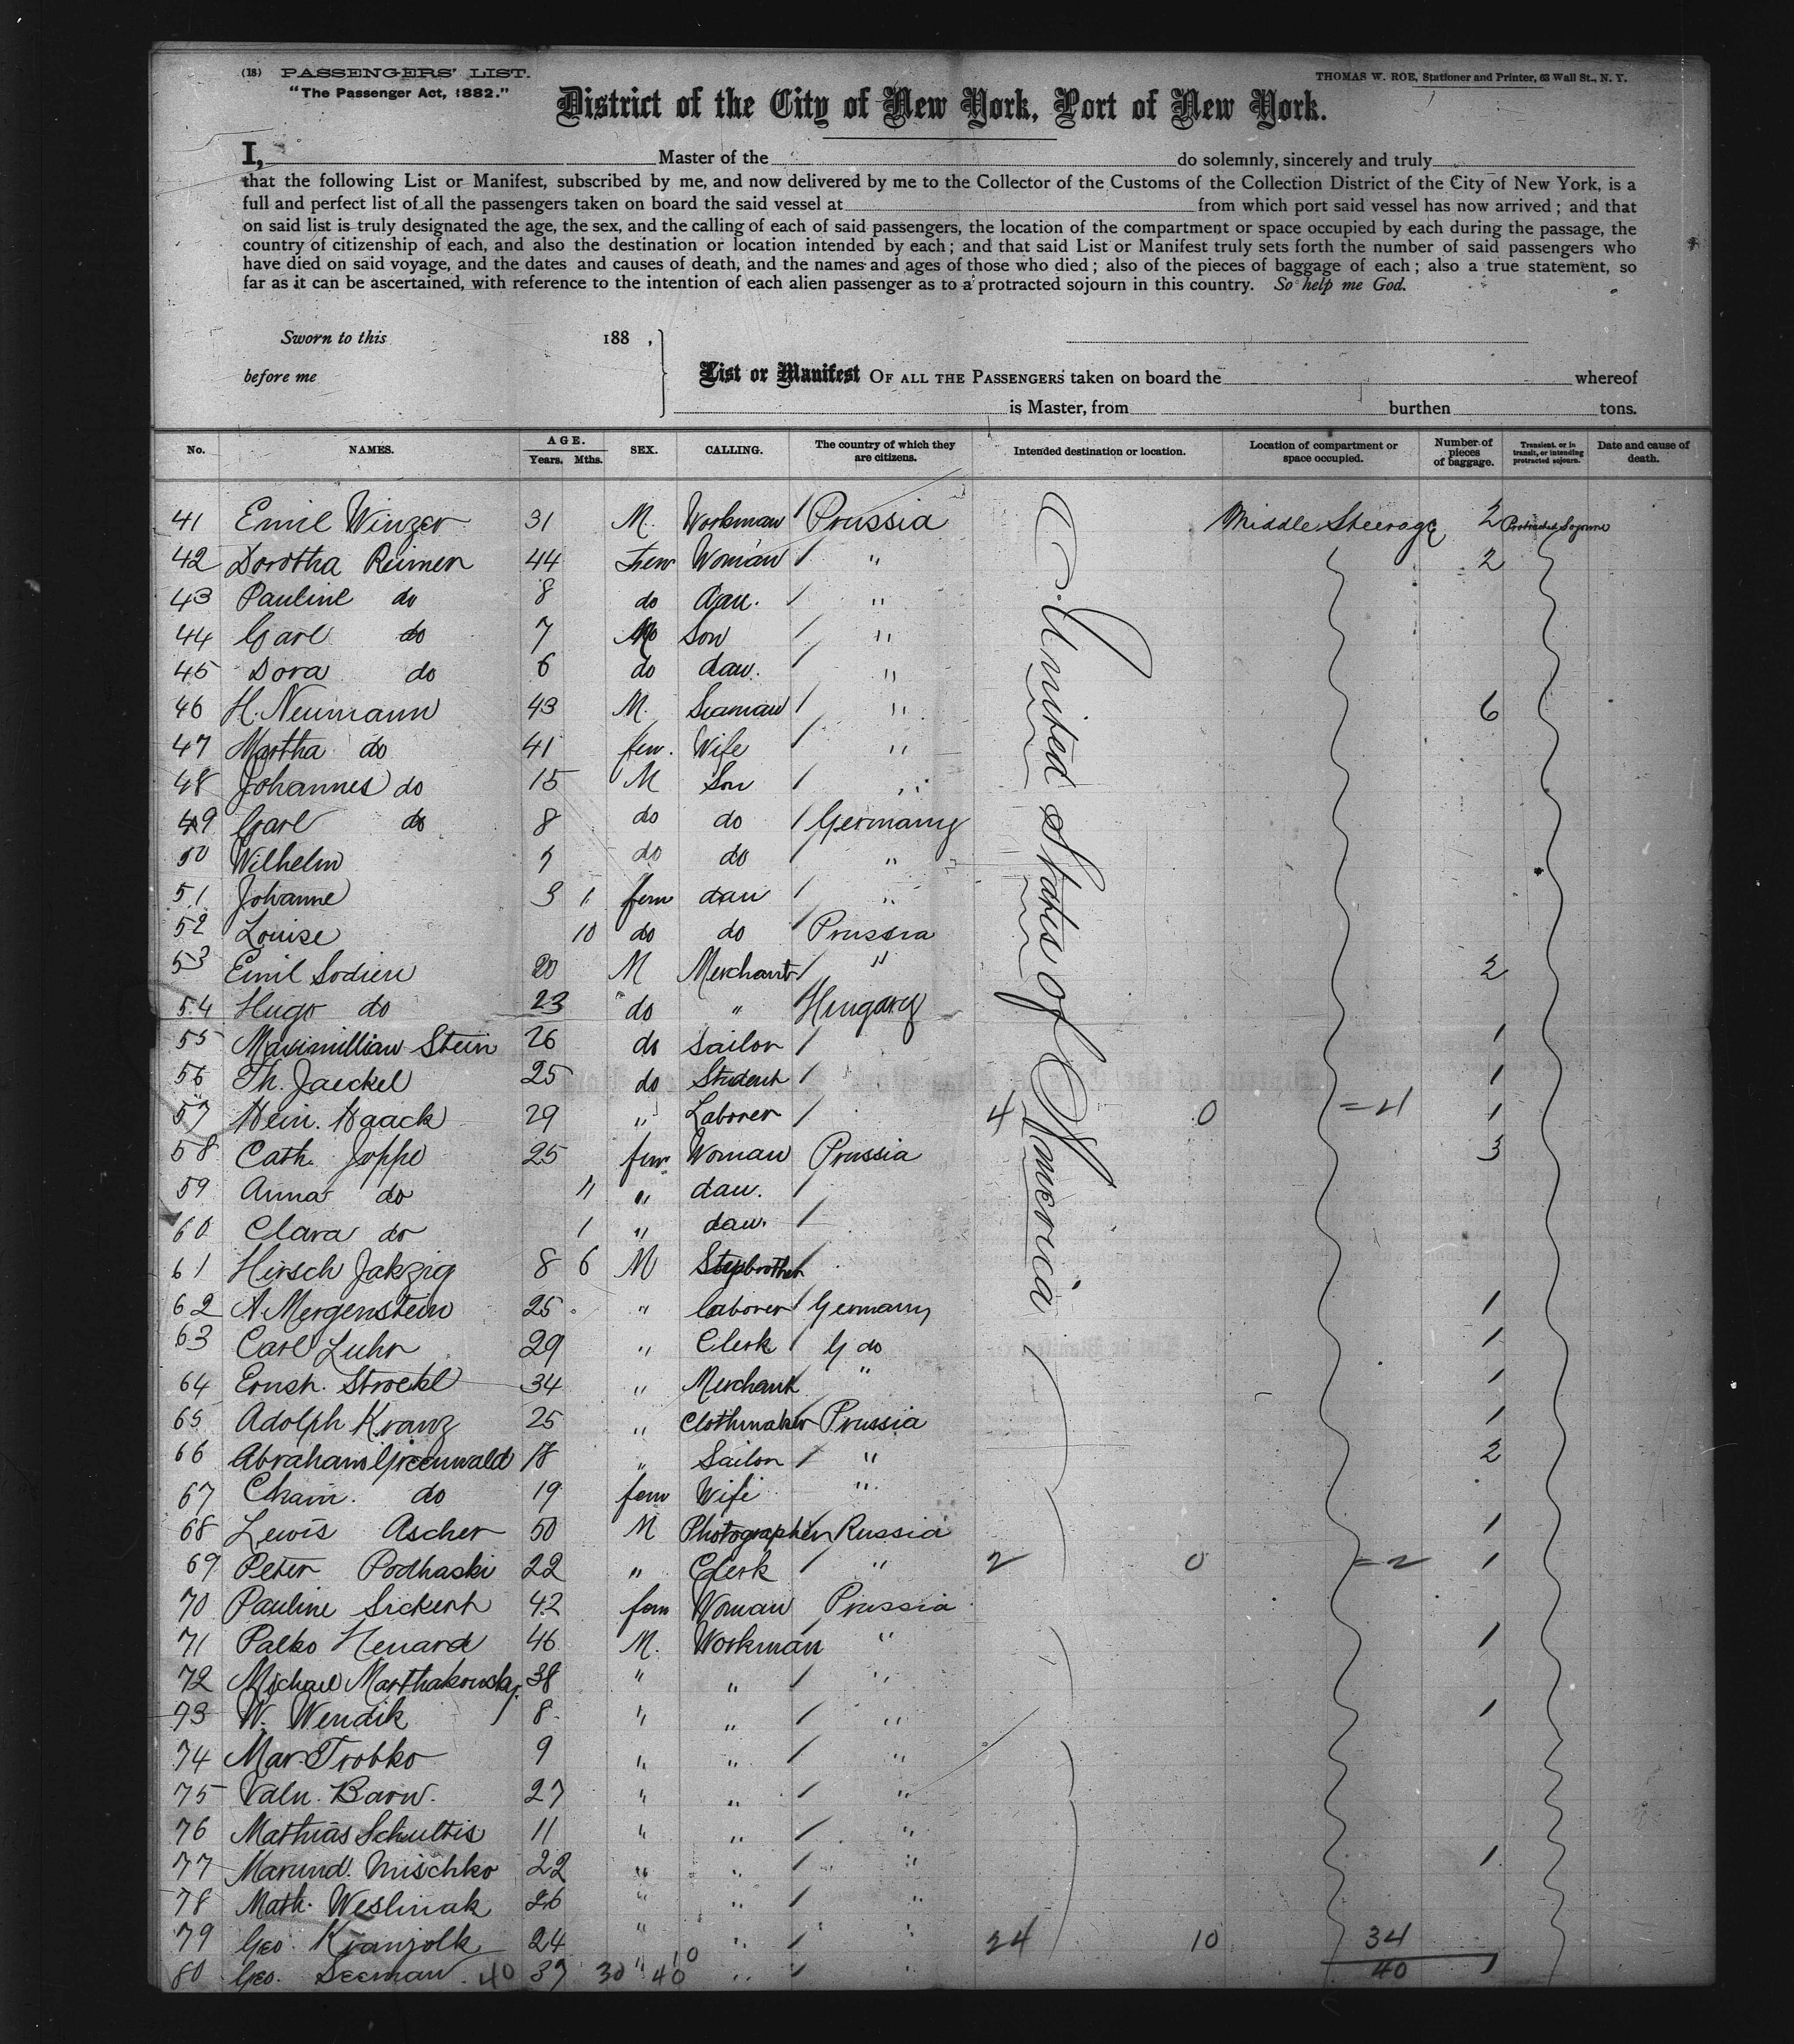 (18) PASSENGERS' LIST.
THOMAS W. ROE, Stationer and Printer, 63 Wall St., N. Y.
"The Passenger Act, 1882."
District of the City of New York, Port of New York.
I, Master of the do solemnly, sincerely and truly
that the following List or Manifest, subscribed by me, and now delivered by me to the Collector of the Customs of the Collection District of the City of New York, is a
full and perfect list of all the passengers taken on board the said vessel at from which port said vessel has now arrived; and that
on said list is truly designated the age, the sex, and the calling of each of said passengers, the location of the compartment or space occupied by each during the passage, the
country of citizenship of each, and also the destination or location intended by each; and that said List or Manifest truly sets forth the number of said passengers who
have died on said voyage, and the dates and causes of death, and the names and ages of those who died; also of the pieces of baggage of each; also a true statement, so
far as it can be ascertained, with reference to the intention of each alien passenger as to a protracted sojourn in this country. So help me God.
Sworn to this 188 ,
before me
List or Manifest OF ALL THE PASSENGERS taken on board the whereof
is Master, from burthen tons.
No. NAMES. AGE. Years. Mths. SEX. CALLING. The country of which they are citizens. Intended destination or location. Location of compartment or space occupied. Number of pieces of baggage. Transient, or in transit, or intending protracted sojourn. Date and cause of death.
United States of America
41 Emil Winzer 31 M. Workman / Prussia Middle Steerage 2 Protracted Sojourn
42 Dorotha Reimer 44 Fem Woman / " 2
43 Pauline do 8 do dau. / "
44 Carl do 7 M Son / "
45 Dora do 6 do dau. / "
46 H. Neumann 43 M. Seaman / " 6
47 Martha do 41 fem. Wife / "
48 Johannes do 15 M Son / "
49 Carl do 8 do do / Germany
50 Wilhelm 5 do do / "
51 Johanne 3 " fem dau / "
52 Louise 10 do do / Prussia
53 Emil Sodien 20 M Merchant / " 2
54 Hugo do 23 do " / Hungary
55 Maximillian Stein 26 do Sailor / 1
56 Th. Jaeckel 25 do Student / 1
57 Hein. Haack 29 " Laborer / 4 0 = 4 1
58 Cath. Joppe 25 fem Woman Prussia 3
59 Anna do 11 " dau. /
60 Clara do 1 " dau. /
61 Hirsch Jakzig 8 6 M Stepbrother /
62 A. Mergenstein 25 " laborer / Germany 1
63 Carl Luhr 29 " Clerk / G do 1
64 Ernst. Stroekl 34 " Merchant / " 1
65 Adolph Kranz 25 " Clothmaker Prussia 1
66 Abraham Greenwald 18 " Sailor / " 2
67 Cham. do 19 fem Wife "
68 Lewis Ascher 50 M Photographer Russia 1
69 Peter Podhaski 22 " Clerk / " 2 0 = 2 1
70 Pauline Sickert 42 fem Woman Prussia
71 Palko Henard 46 M. Workman " 1
72 Michael Marthakowsky. 38 " " / "
73 W. Wendik 8 " " / " 1
74 Mar. Trobko 9 " " / "
75 Valn. Barn. 27 " " / "
76 Mathias Schultis 11 " " / "
77 Marund. Mischko 22 " " / " 1
78 Math. Weslinak 26 " " / "
79 Geo. Kranjolk 24 " " / " 24 10 34
80 Geo. Seeman. 40 37 30 10 40 " / 40 1